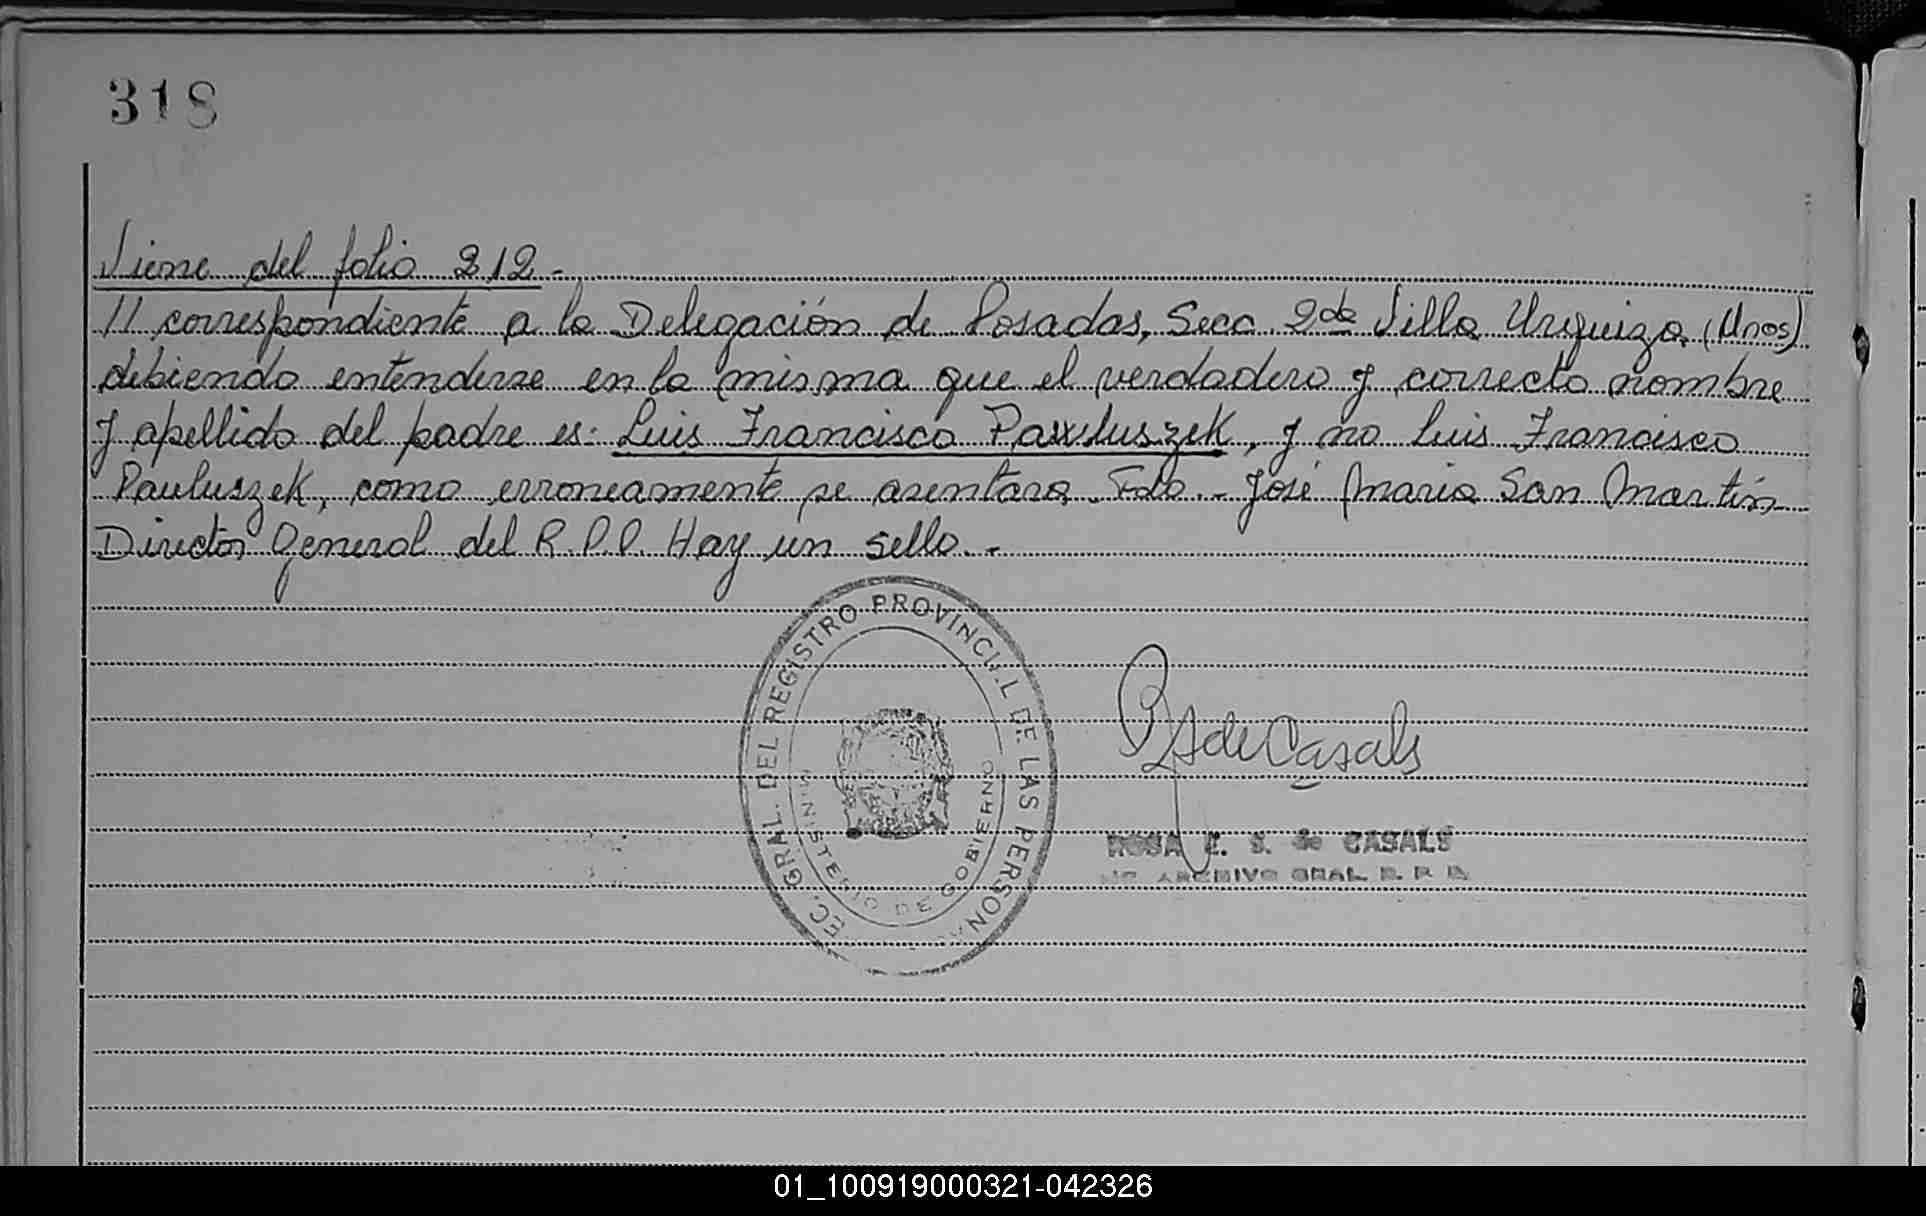 318
Viene del folio 212.-
// correspondiente a la Delegación de Posadas, Secc 2da Villa Urquiza, (Mnes)
debiendo entenderse en la misma que el verdadero y correcto nombre
y apellido del padre es: Luis Francisco Pawluszek, y no Luis Francisco
Pauluszek, como erroneamente se asentara. Fdo.- José Maria San Martín
Director General del R.P.P. Hay un sello.-
GRAL. DEL REGISTRO PROVINCIAL DE LAS PERSONAS
MINISTERIO DE GOBIERNO
de Casals
ROSA E. S. de CASALS
ARCHIVO GRAL. R. P. P.
01_100919000321-042326